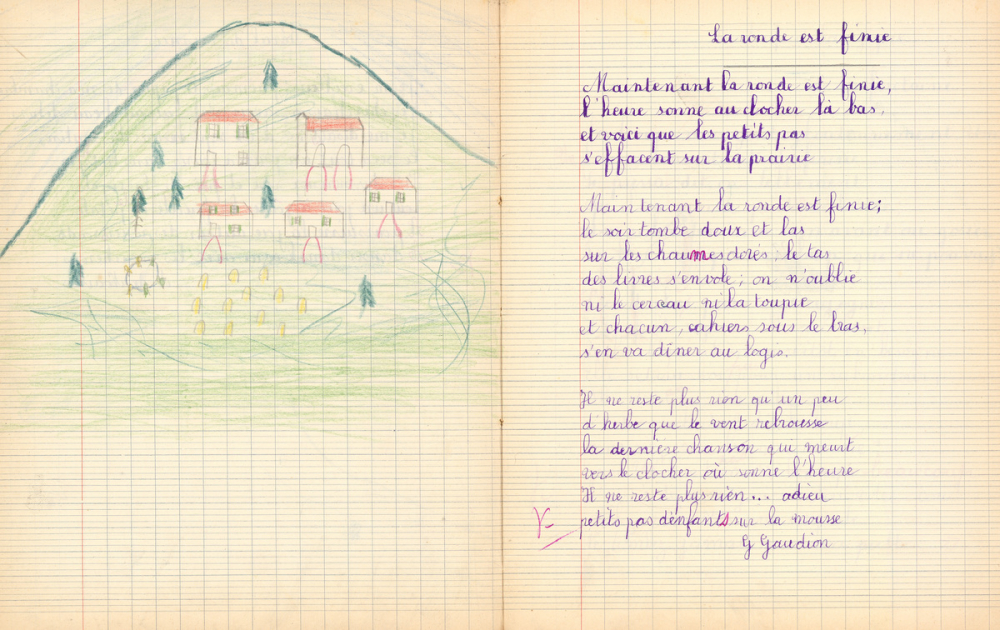 La ronde est finie
Maintenant la ronde est finie,
l'heure sonne au clocher là bas,
et voici que les petits pas
s'effacent sur la prairie
Maintenant la ronde est finie;
le soir tombe doux et las
sur les chaumes dorés; le tas
des livres s'envole; on n'oublie
ni le cerceau ni la toupie
et chacun, cahiers sous le bras,
s'en va dîner au logis.
Il ne reste plus rien qu'un peu
d'herbe que le vent rebrousse
la dernière chanson qui meurt
vers le clocher où sonne l'heure
Il ne reste plus rien... adieu
petits pas d'enfants sur la mousse
G Gaudion